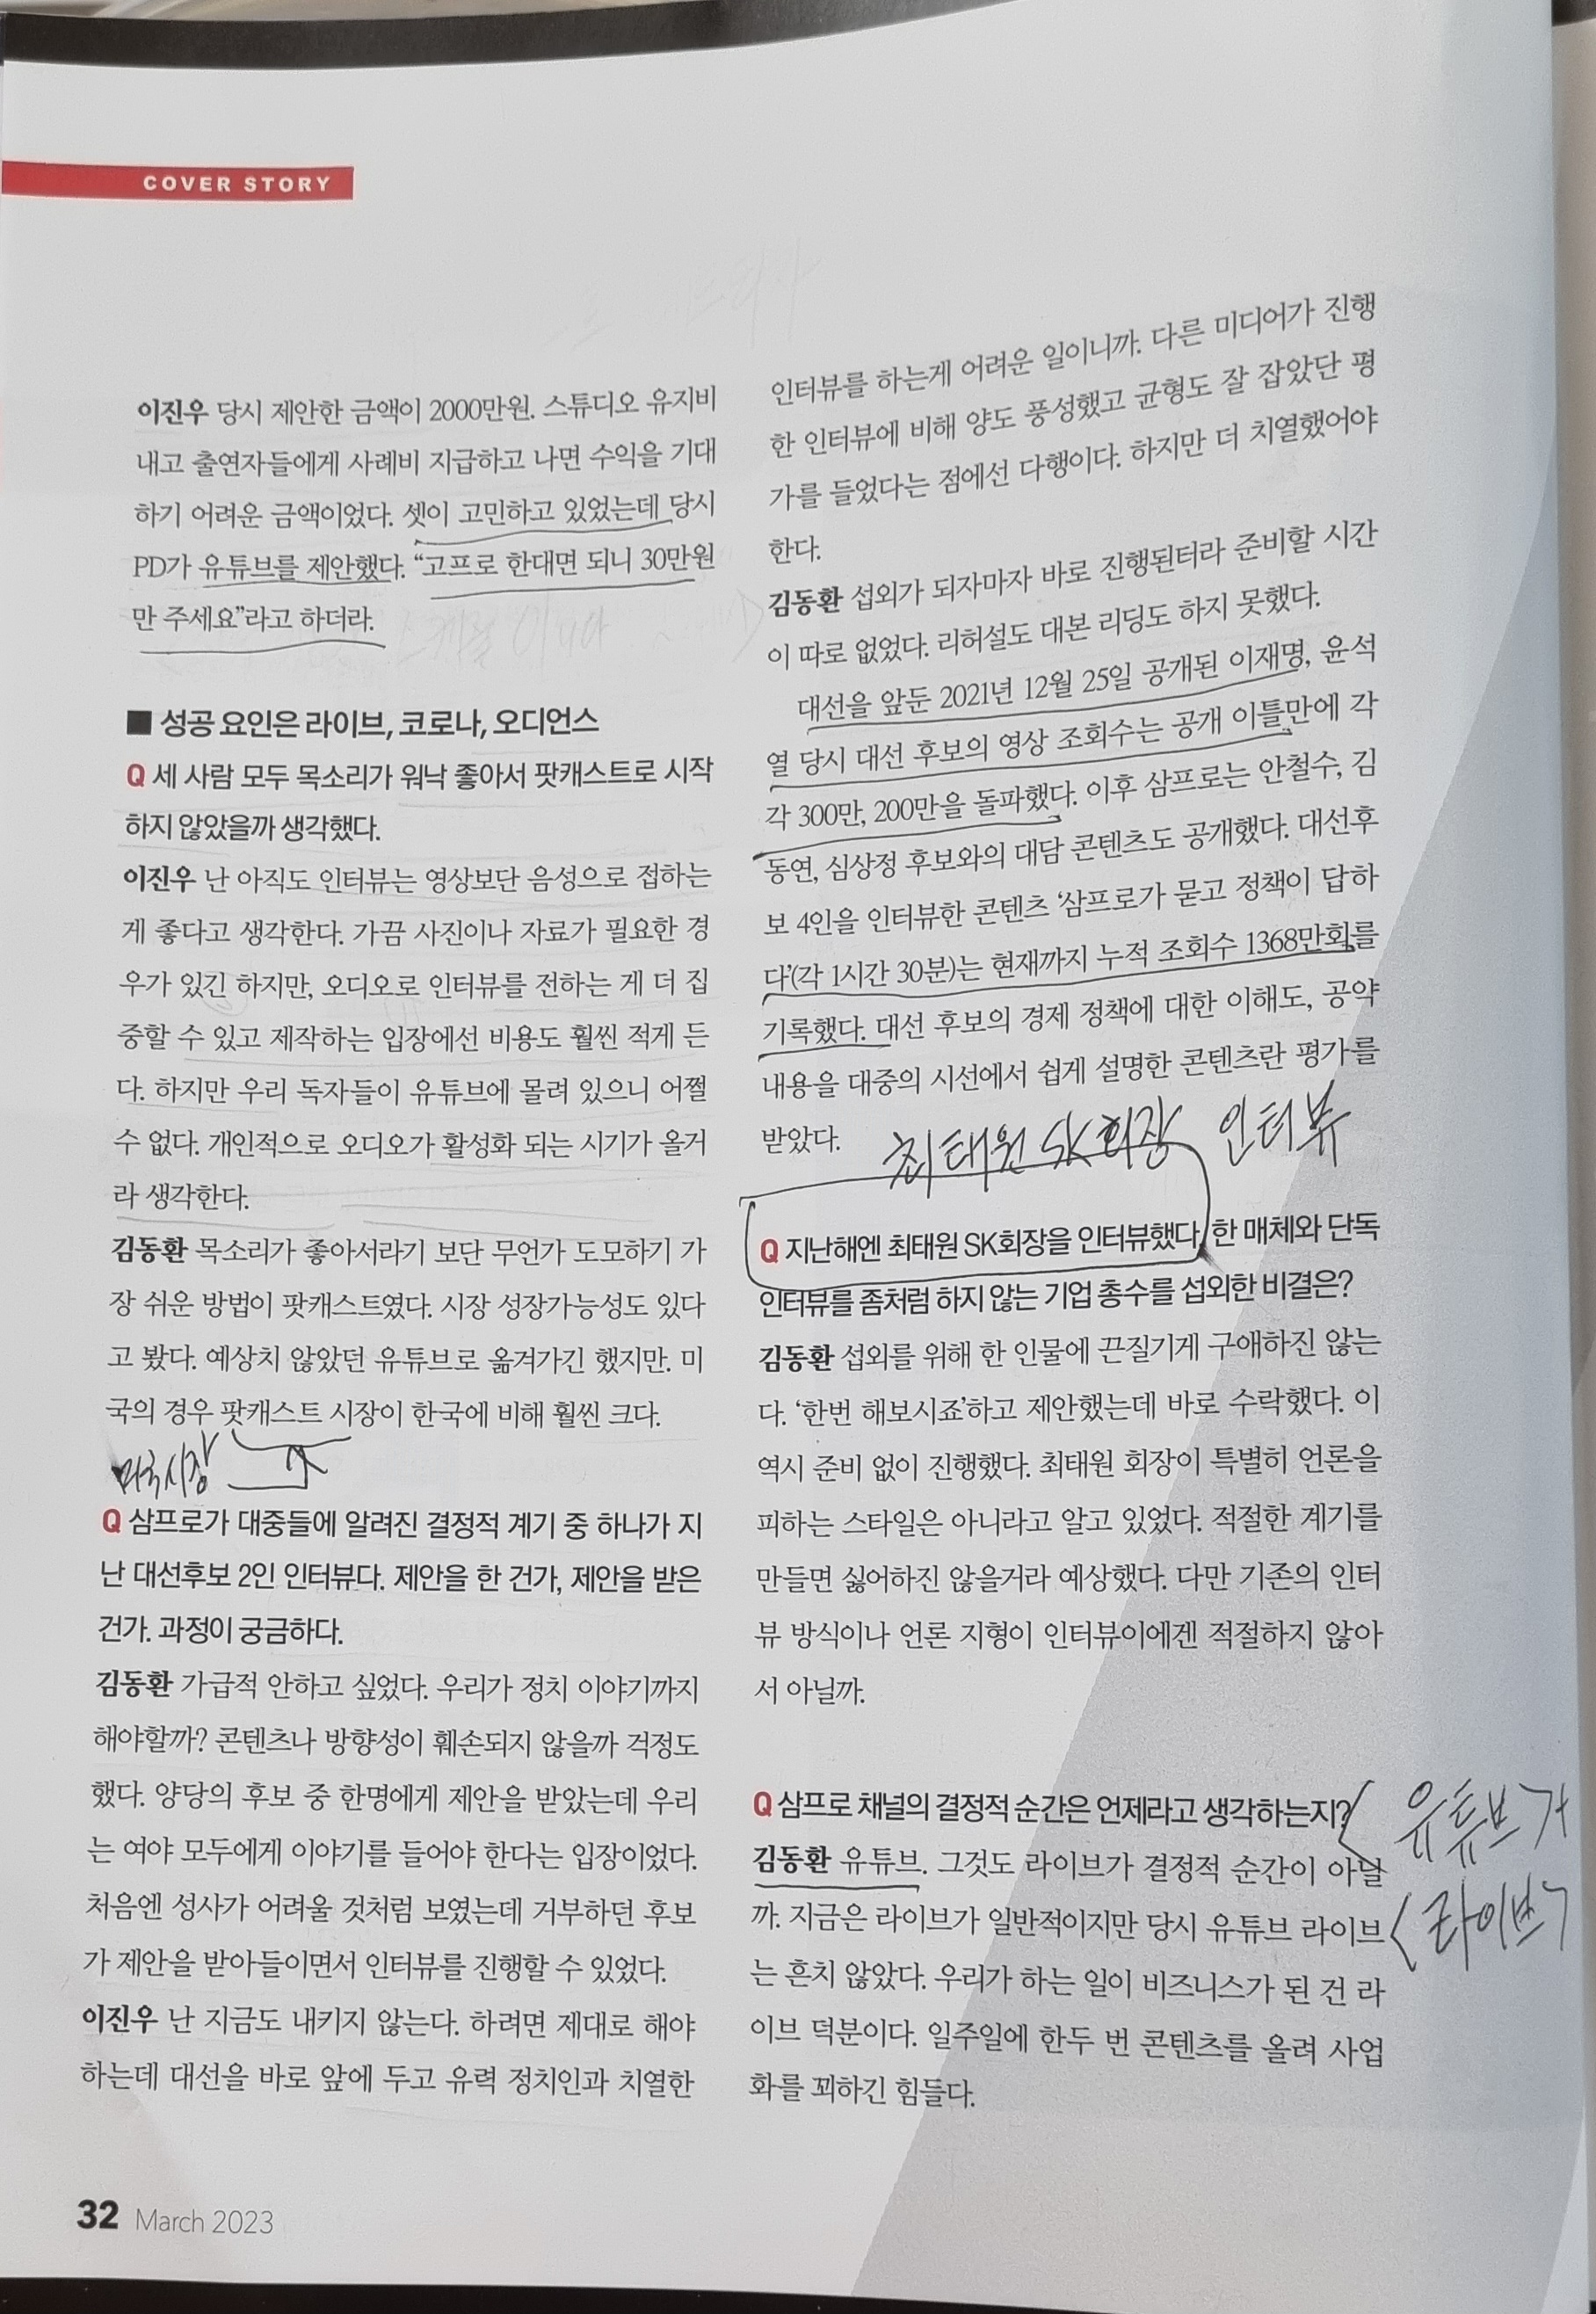 COVER STORY
이진우 당시 제안한 금액이 2000만원. 스튜디오 유지비
내고 출연자들에게 사례비 지급하고 나면 수익을 기대
하기 어려운 금액이었다. 셋이 고민하고 있었는데 당시
PD가 유튜브를 제안했다. “고프로 한대면 되니 30만원
만 주세요”라고 하더라.
■ 성공 요인은 라이브, 코로나, 오디언스
Q 세 사람 모두 목소리가 워낙 좋아서 팟캐스트로 시작
하지 않았을까 생각했다.
이진우 난 아직도 인터뷰는 영상보단 음성으로 접하는
게 좋다고 생각한다. 가끔 사진이나 자료가 필요한 경
우가 있긴 하지만, 오디오로 인터뷰를 전하는 게 더 집
중할 수 있고 제작하는 입장에선 비용도 훨씬 적게 든
다. 하지만 우리 독자들이 유튜브에 몰려 있으니 어쩔
수 없다. 개인적으로 오디오가 활성화 되는 시기가 올거
라 생각한다.
김동환 목소리가 좋아서라기 보단 무언가 도모하기 가
장 쉬운 방법이 팟캐스트였다. 시장 성장가능성도 있다
고 봤다. 예상치 않았던 유튜브로 옮겨가긴 했지만. 미
국의 경우 팟캐스트 시장이 한국에 비해 훨씬 크다.
미국시장
Q 삼프로가 대중들에 알려진 결정적 계기 중 하나가 지
난 대선후보 2인 인터뷰다. 제안을 한 건가, 제안을 받은
건가. 과정이 궁금하다.
김동환 가급적 안하고 싶었다. 우리가 정치 이야기까지
해야할까? 콘텐츠나 방향성이 훼손되지 않을까 걱정도
했다. 양당의 후보 중 한명에게 제안을 받았는데 우리
는 여야 모두에게 이야기를 들어야 한다는 입장이었다.
처음엔 성사가 어려울 것처럼 보였는데 거부하던 후보
가 제안을 받아들이면서 인터뷰를 진행할 수 있었다.
이진우 난 지금도 내키지 않는다. 하려면 제대로 해야
하는데 대선을 바로 앞에 두고 유력 정치인과 치열한
인터뷰를 하는게 어려운 일이니까. 다른 미디어가 진행
한 인터뷰에 비해 양도 풍성했고 균형도 잘 잡았단 평
가를 들었다는 점에선 다행이다. 하지만 더 치열했어야
한다.
김동환 섭외가 되자마자 바로 진행된터라 준비할 시간
이 따로 없었다. 리허설도 대본 리딩도 하지 못했다.
대선을 앞둔 2021년 12월 25일 공개된 이재명, 윤석
열 당시 대선 후보의 영상 조회수는 공개 이틀만에 각
각 300만, 200만을 돌파했다. 이후 삼프로는 안철수, 김
동연, 심상정 후보와의 대담 콘텐츠도 공개했다. 대선후
보 4인을 인터뷰한 콘텐츠 ‘삼프로가 묻고 정책이 답하
다’(각 1시간 30분)는 현재까지 누적 조회수 1368만회를
기록했다. 대선 후보의 경제 정책에 대한 이해도, 공약
내용을 대중의 시선에서 쉽게 설명한 콘텐츠란 평가를
받았다.
최태원 SK 회장 인터뷰
Q 지난해엔 최태원 SK회장을 인터뷰했다. 한 매체와 단독
인터뷰를 좀처럼 하지 않는 기업 총수를 섭외한 비결은?
김동환 섭외를 위해 한 인물에 끈질기게 구애하진 않는
다. ‘한번 해보시죠’하고 제안했는데 바로 수락했다. 이
역시 준비 없이 진행했다. 최태원 회장이 특별히 언론을
피하는 스타일은 아니라고 알고 있었다. 적절한 계기를
만들면 싫어하진 않을거라 예상했다. 다만 기존의 인터
뷰 방식이나 언론 지형이 인터뷰이에겐 적절하지 않아
서 아닐까.
Q 삼프로 채널의 결정적 순간은 언제라고 생각하는지?
김동환 유튜브. 그것도 라이브가 결정적 순간이 아닐
까. 지금은 라이브가 일반적이지만 당시 유튜브 라이브
는 흔치 않았다. 우리가 하는 일이 비즈니스가 된 건 라
이브 덕분이다. 일주일에 한두 번 콘텐츠를 올려 사업
화를 꾀하긴 힘들다.
유튜브가
<라이브>
32 March 2023